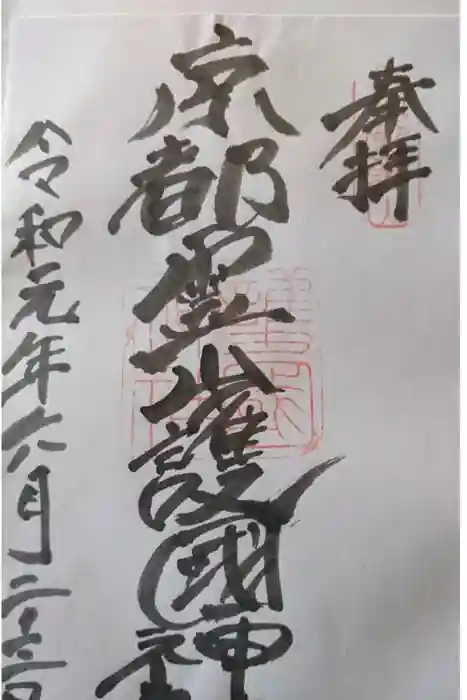 奉拝
京都霊山護國神社
令和元年六月二十二日